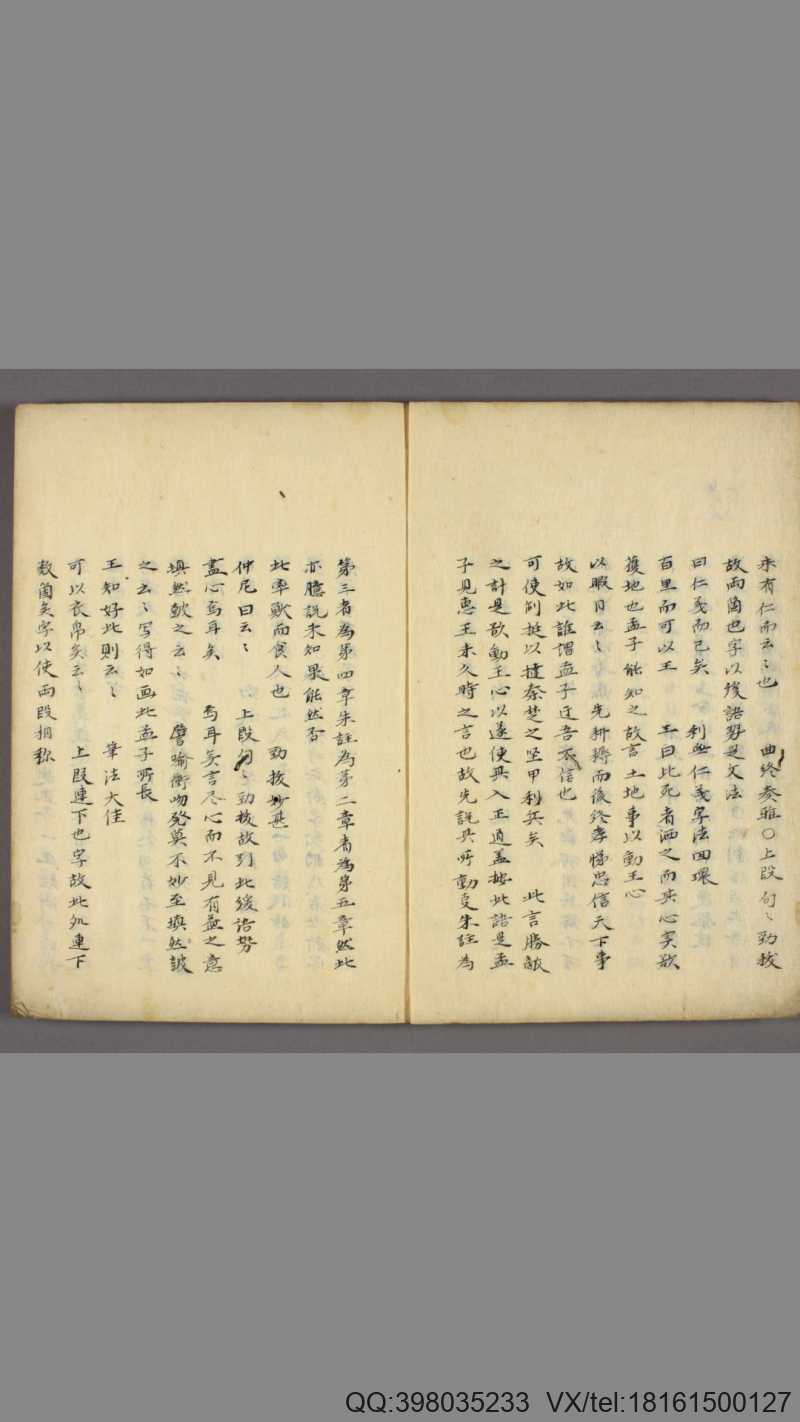 未有仁而云〻也　曲終奏雅〇上段句〻勁拔
故両箇也字以緩語勢是文法
曰仁義而已矣　利與仁義字法回環
百里而可以王　王曰比死者洒之而其心実欲
獲地也孟子能知之故言土地事以動王心
以暇日云〻　先耕耨而後終孝悌忠信天下事
故如此誰謂孟子迂吾不信也
可使制挺以撻秦楚之堅甲利兵矣　此言勝敵
之計是欲動王心以遂使其入正道蓋按此語是孟
子見惠王未久時之言也故先說其所動更朱註為
第三者為第四章朱註為第二章者為第五章然此
亦臆說未知果能然否
此率獸而食人也　勁拔妙甚
仲尼曰云〻　上段句〻勁拔故到此緩語勢
盡心焉耳矣　焉耳矣言尽心而不見有益之意
填然鼓之云〻　譬喻衝吻発莫不妙至填然皷
之云〻写得如画此孟子所長
王知好此則云〻　筆法大佳
可以衣帛矣云〻　上段連下也字故此処連下
数箇矣字以使両段相称
QQ:398035233 VX/tel:18161500127